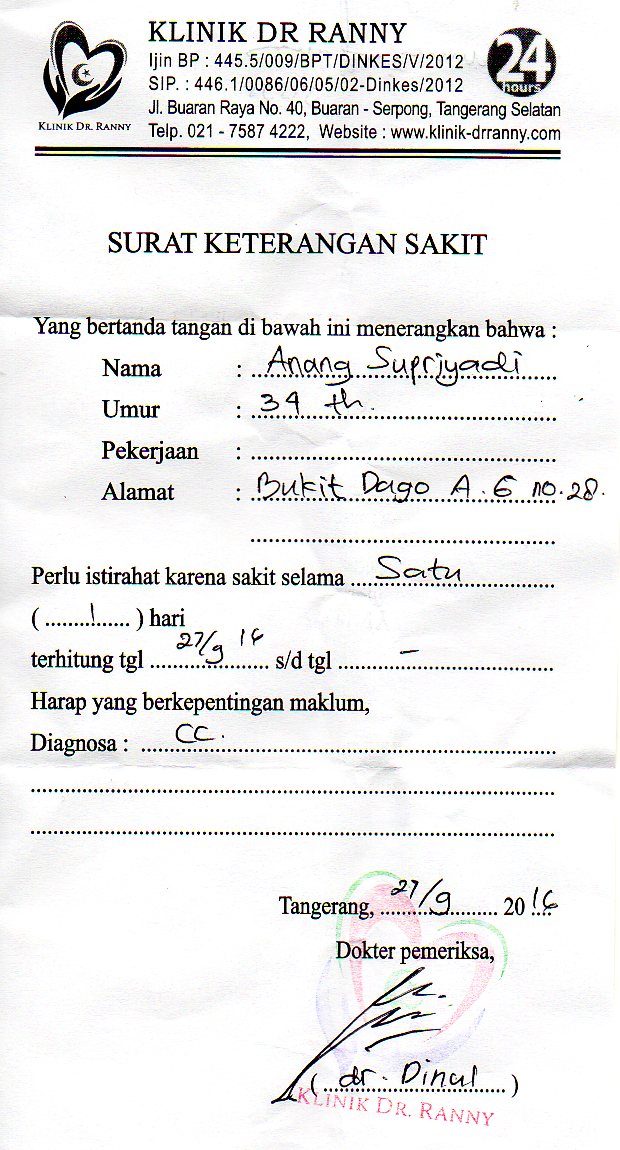 KLINIK DR RANNY
Ijin BP : 445.5/009/BPT/DINKES/V/2012
SIP. : 446.1/0086/06/05/02-Dinkes/2012
Jl. Buaran Raya No. 40, Buaran - Serpong, Tangerang Selatan
Telp. 021 - 7587 4222, Website : www.klinik-drranny.com
KLINIK DR. RANNY
24 hours
SURAT KETERANGAN SAKIT
Yang bertanda tangan di bawah ini menerangkan bahwa :
Nama : Anang Supriyadi
Umur : 34 th.
Pekerjaan :
Alamat : Bukit Dago A.6 no.28.
Perlu istirahat karena sakit selama Satu
(.........1.......) hari
terhitung tgl 27/9 16 s/d tgl –
Harap yang berkepentingan maklum,
Diagnosa : CC.
Tangerang, 27/9 2016
Dokter pemeriksa,
(dr. Dinul)
KLINIK DR. RANNY